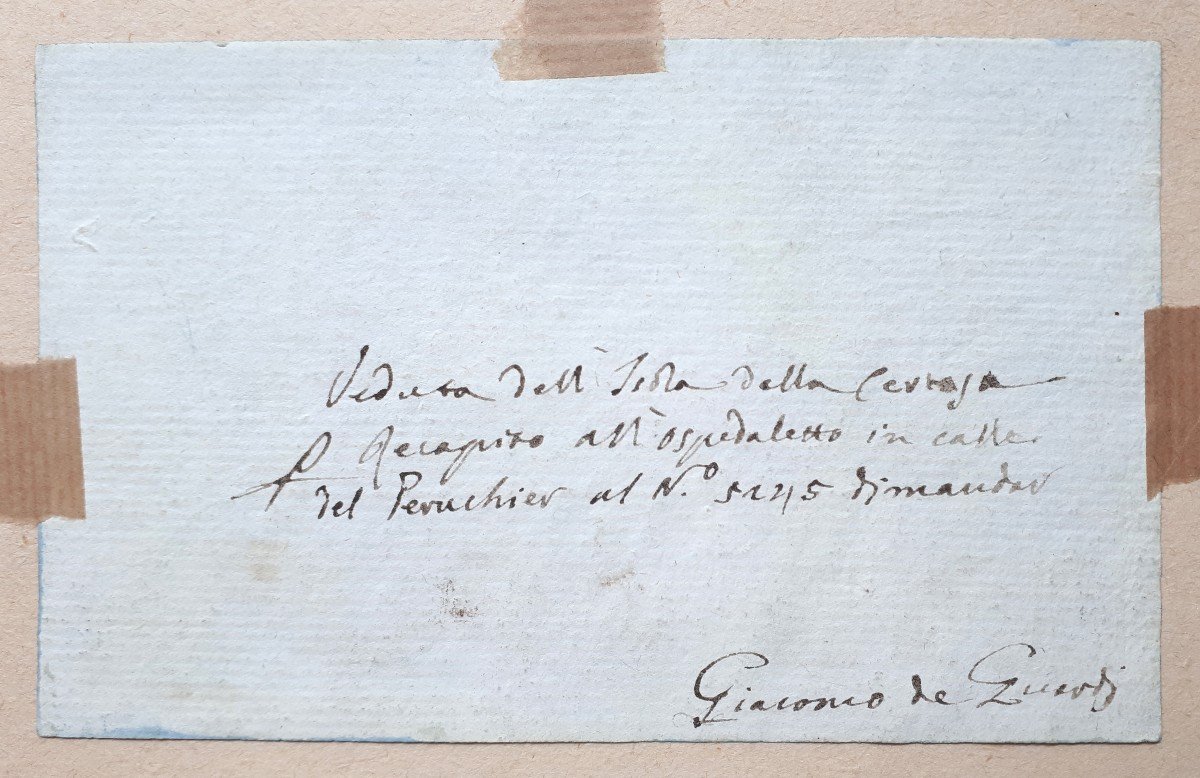 Veduta dell' Isola della Certosa
P Recapito all' ospedaletto in calle
del Peruchier al N.º 5245 dimandar
Giacomo de Guardi